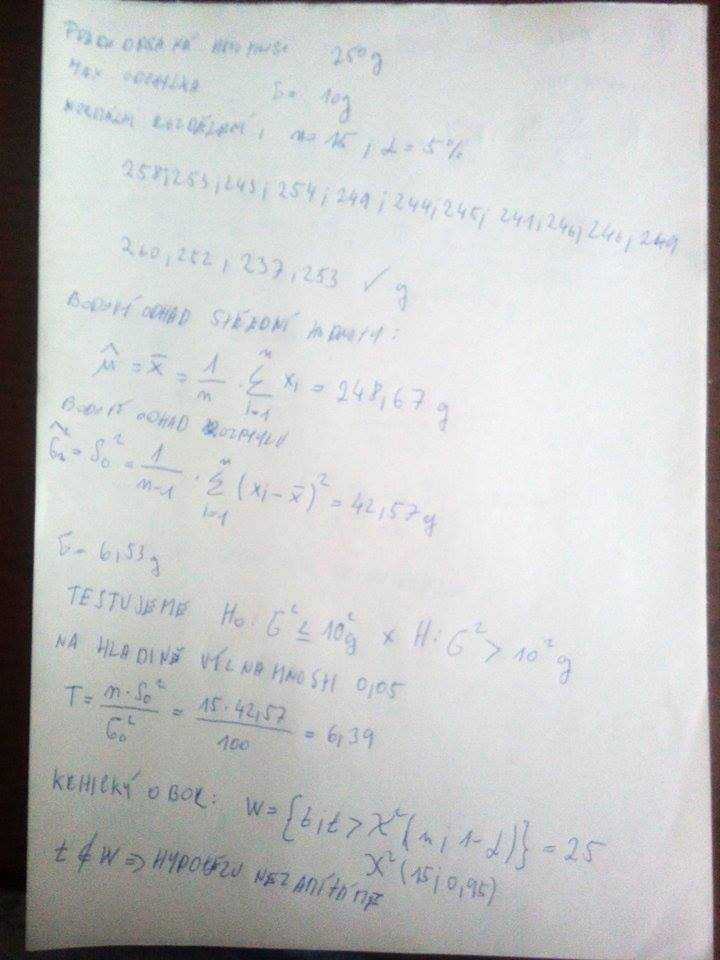 250g
MAX ODCHYLKA σ = 10g
NORMÁLNÍ ROZDĚLENÍ, n=15, α=5%
258, 253, 243, 254, 249, 244, 245, 241, 246, 246, 249
260, 252, 237, 253 ✓ g
BODOVÝ ODHAD STŘEDNÍ HODNOTY:
μ̂ = x̄ = 1/n · Σ_{i=1}^{n} x_i = 248,67 g
BODOVÝ ODHAD ROZPTYLU
σ̂_n² = S₀² = 1/(n-1) · Σ_{i=1}^{n} (x_i - x̄)² = 42,57 g
σ = 6,53 g
TESTUJEME H₀: σ² ≤ 10² g × H: σ² > 10² g
NA HLADINĚ VÝZNAMNOSTI 0,05
T = n·S₀²/σ₀² = 15·42,57/100 = 6,39
KRITICKÝ OBOR: W = {t; t > χ²(n; 1-α)} = 25
χ²(15; 0,95)
t ∉ W ⇒ HYPOTÉZU NEZAMÍTÁME